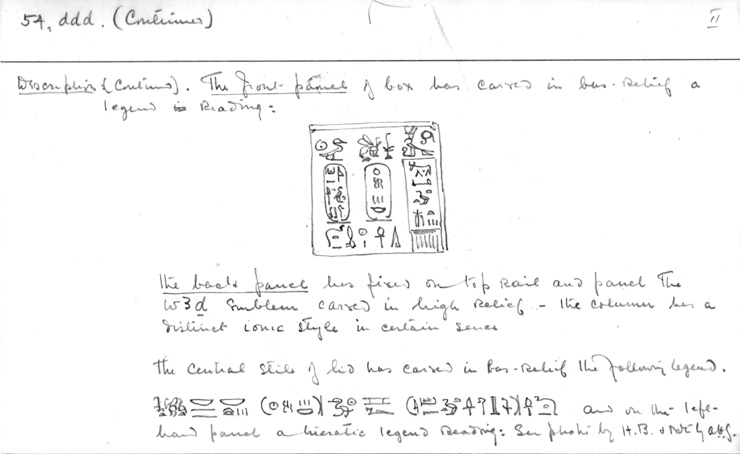 54, ddd. (Continued) II
Description (Continued). The front panel of box has carved in bas-relief a
legend reading:
The back panel has fixed on top rail and panel The
W3d Emblem carved in high relief - the column has a
distinct ionic style in certain sense
The central stile of lid has carved in bas-relief the following legend.
and on the left-
hand panel a hieratic legend reading: See photo by H.B. & note by A.H.G.